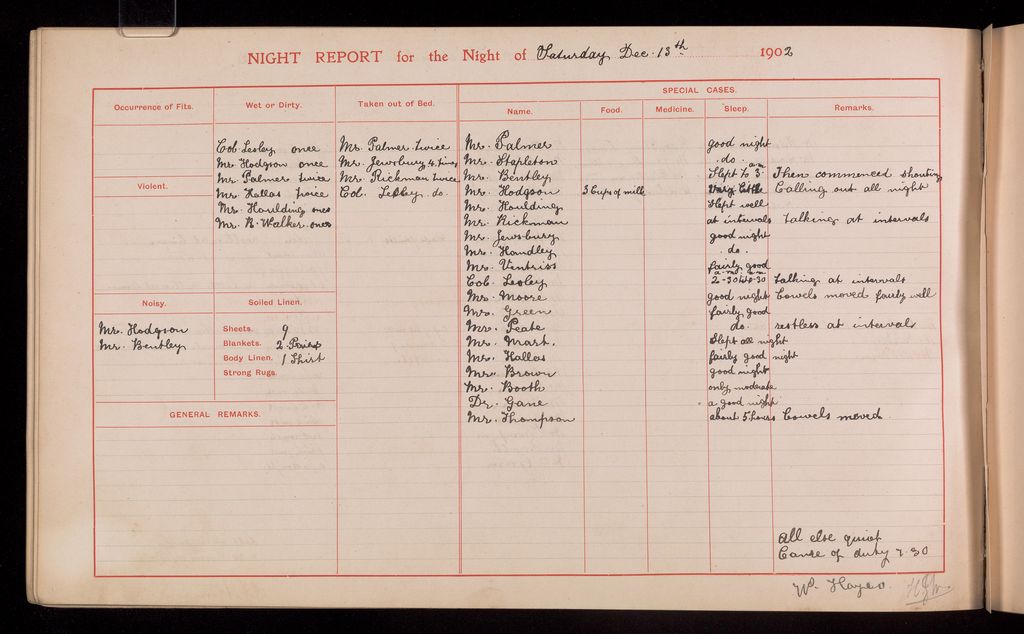 NIGHT REPORT for the Night of Saturday Dec. 13th 1902
Occurrence of Fits.
Wet or Dirty.
Taken out of Bed.
SPECIAL CASES.
Name.
Food.
Medicine.
Sleep.
Remarks.
Col. Lesley once
Mr. Hodgson once
Mr. Palmer twice
Mr. Hallas twice
Mr. Houlding once
Mr. R. Walker once
Mr. Palmer twice
Mr. Jewsbury 4 times
Mr. Rickman twice
Col. Lesley do.
Violent.
Noisy.
Mr. Hodgson
Mr. Bentley
Soiled Linen.
Sheets. 9
Blankets. 2 Pairs
Body Linen. 1 Shirt
Strong Rugs.
GENERAL REMARKS.
Mr. Palmer good night
Mr. Stapleton do.
Mr. Bentley Slept to 3 a.m Then commenced shouting
Mr. Hodgson 3 Cups of milk Very little Calling out all night
Mr. Houlding Slept well
Mr. Rickman at intervals talking at intervals
Mr. Jewsbury good night
Mr. Handley do.
Mr. Ventriss fairly good
Col. Lesley 2-30 a.m to 6-30 a.m talking at intervals
Mr. Moore good night bowels moved fairly well
Mr. Green fairly good
Mr. Peate do. restless at intervals
Mr. Mart. Slept all night
Mr. Hallas fairly good night
Mr. Brown good night
Mr. Booth only moderate
Dr. Gane a good night
Mr. Thompson about 5 hours bowels moved
All else quiet
Came of duty 7.30
W. Hayes.